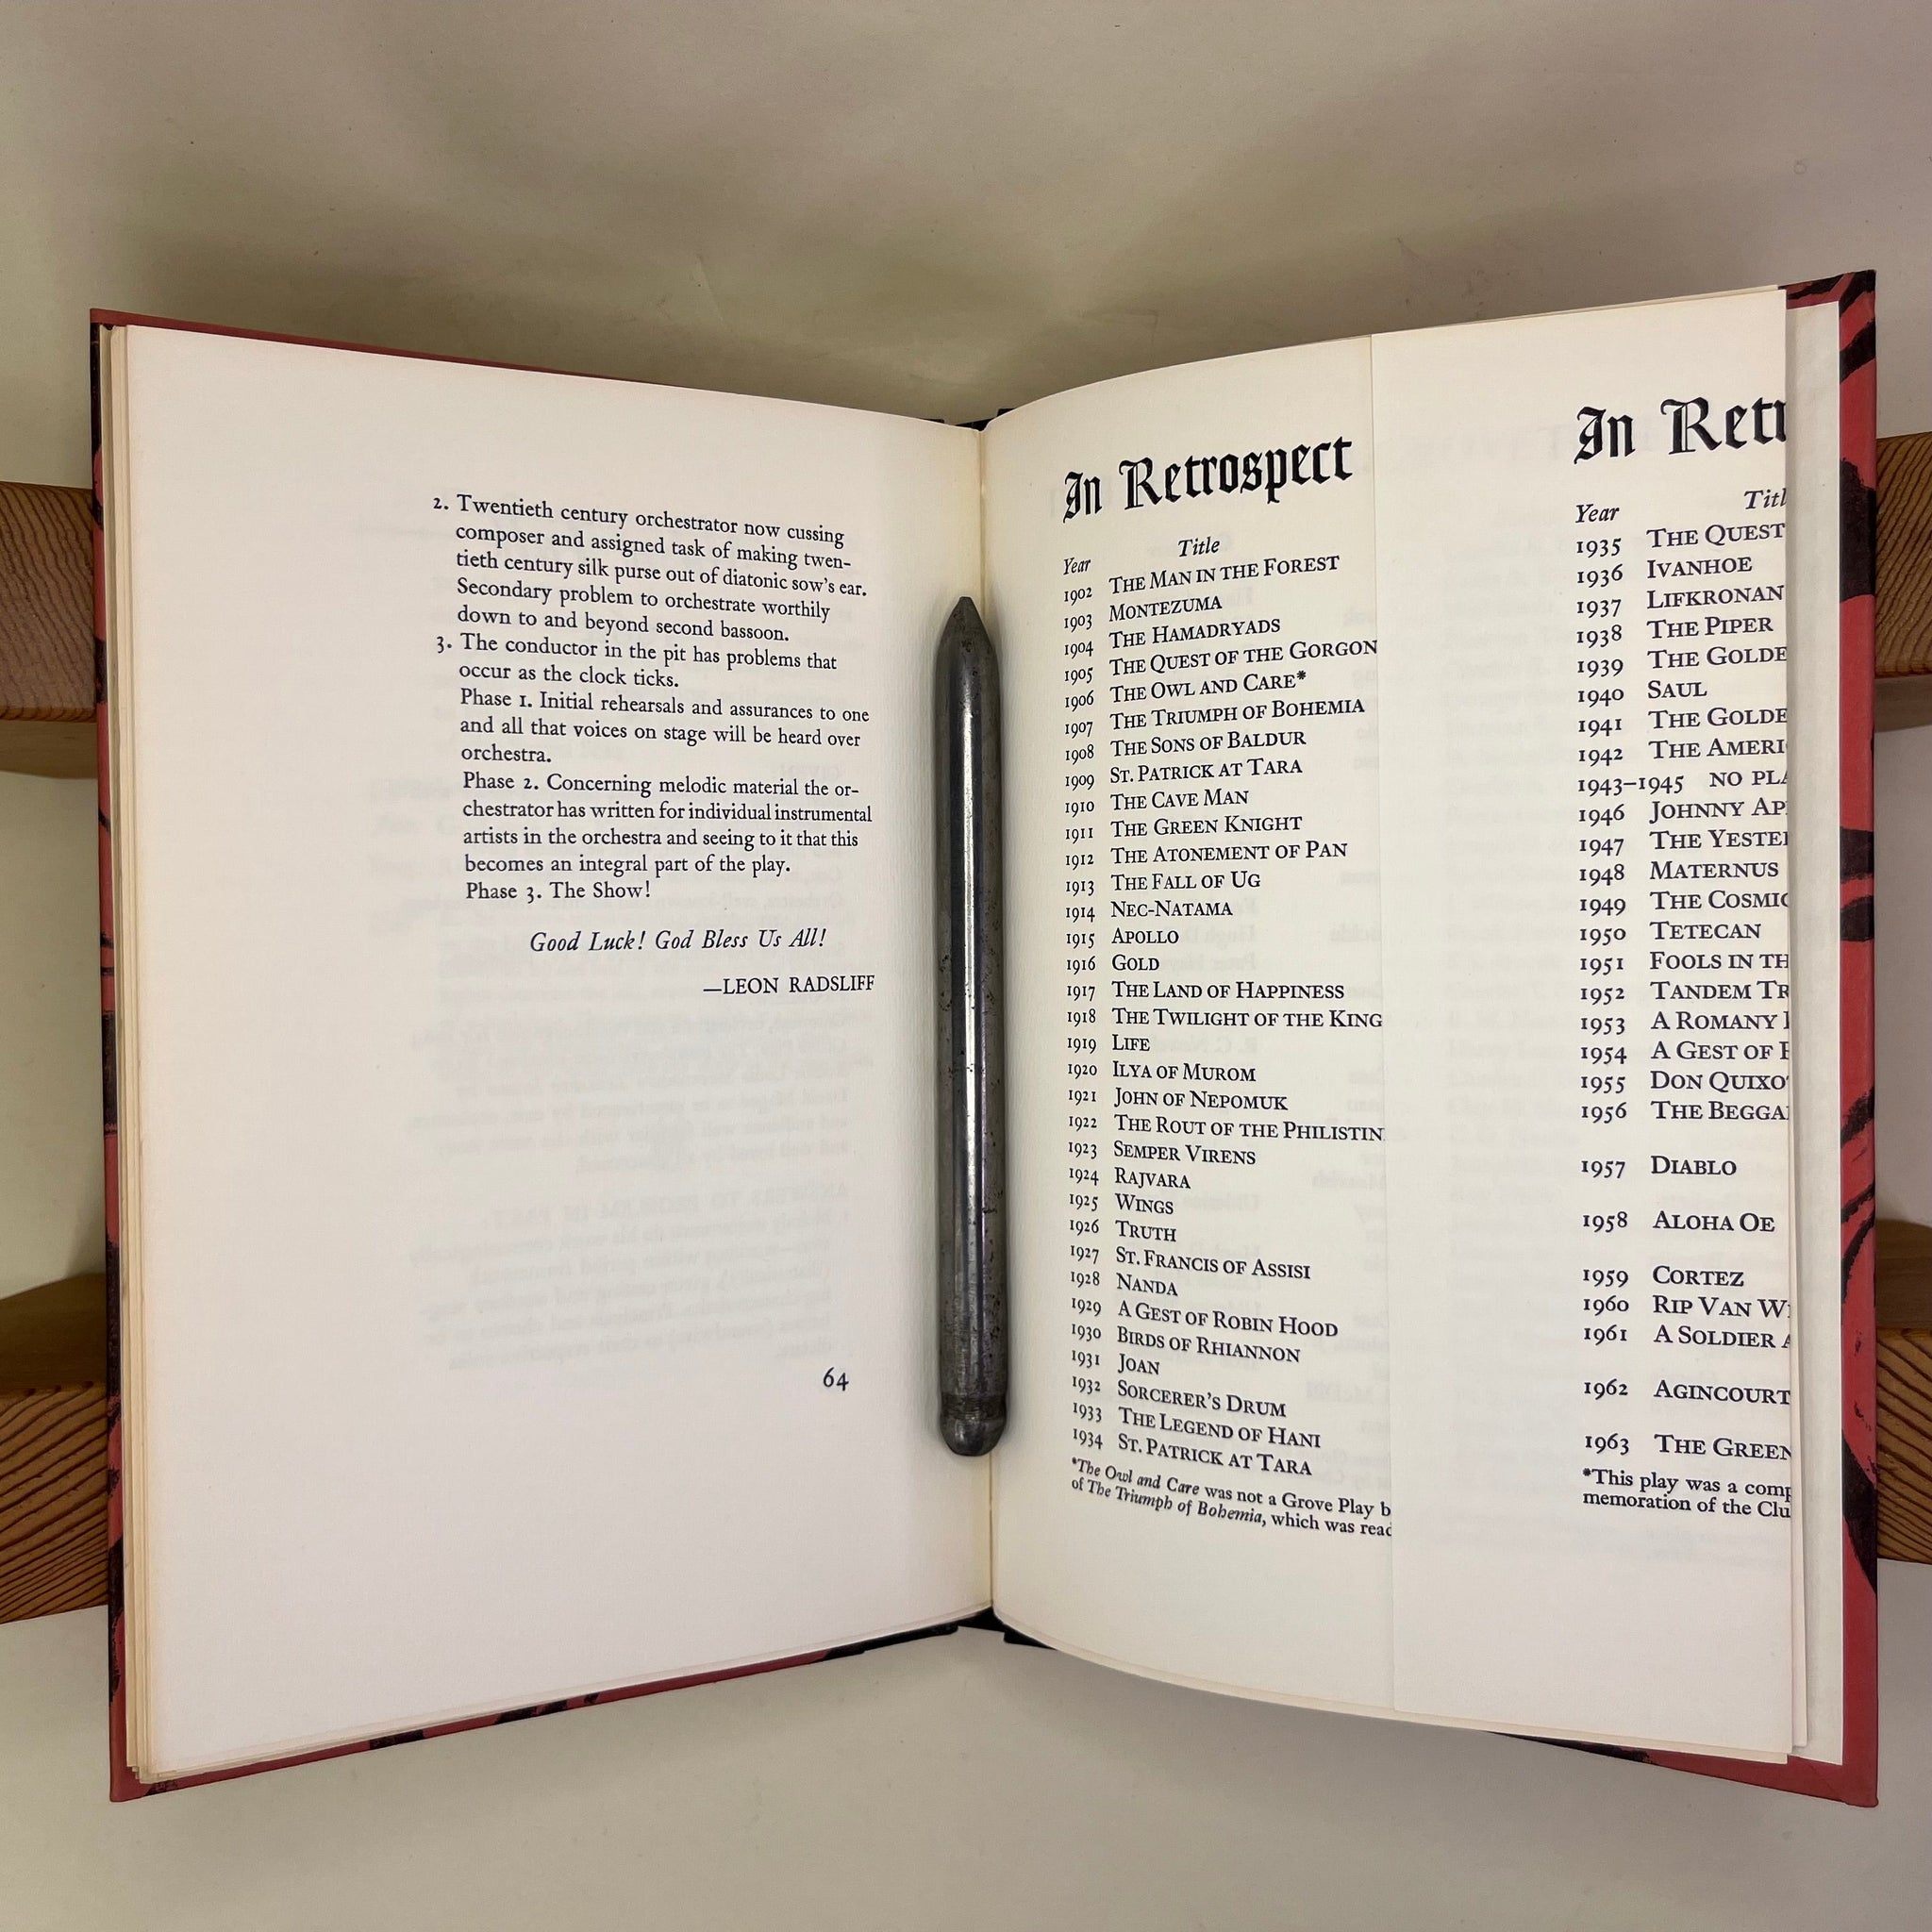 2. Twentieth century orchestrator now cussing
composer and assigned task of making twen-
tieth century silk purse out of diatonic sow's ear.
Secondary problem to orchestrate worthily
down to and beyond second bassoon.
3. The conductor in the pit has problems that
occur as the clock ticks.
Phase 1. Initial rehearsals and assurances to one
and all that voices on stage will be heard over
orchestra.
Phase 2. Concerning melodic material the or-
chestrator has written for individual instrumental
artists in the orchestra and seeing to it that this
becomes an integral part of the play.
Phase 3. The Show!
Good Luck! God Bless Us All!
—LEON RADSLIFF
64
In Retrospect
Year Title
1902 THE MAN IN THE FOREST
1903 MONTEZUMA
1904 THE HAMADRYADS
1905 THE QUEST OF THE GORGON
1906 THE OWL AND CARE*
1907 THE TRIUMPH OF BOHEMIA
1908 THE SONS OF BALDUR
1909 ST. PATRICK AT TARA
1910 THE CAVE MAN
1911 THE GREEN KNIGHT
1912 THE ATONEMENT OF PAN
1913 THE FALL OF UG
1914 NEC-NATAMA
1915 APOLLO
1916 GOLD
1917 THE LAND OF HAPPINESS
1918 THE TWILIGHT OF THE KING
1919 LIFE
1920 ILYA OF MUROM
1921 JOHN OF NEPOMUK
1922 THE ROUT OF THE PHILISTIN
1923 SEMPER VIRENS
1924 RAJVARA
1925 WINGS
1926 TRUTH
1927 ST. FRANCIS OF ASSISI
1928 NANDA
1929 A GEST OF ROBIN HOOD
1930 BIRDS OF RHIANNON
1931 JOAN
1932 SORCERER'S DRUM
1933 THE LEGEND OF HANI
1934 ST. PATRICK AT TARA
*The Owl and Care was not a Grove Play b
of The Triumph of Bohemia, which was read
In Retr
Year Titl
1935 THE QUEST
1936 IVANHOE
1937 LIFKRONAN
1938 THE PIPER
1939 THE GOLDE
1940 SAUL
1941 THE GOLDE
1942 THE AMERI
1943–1945 NO PLA
1946 JOHNNY AP
1947 THE YESTE
1948 MATERNUS
1949 THE COSMIC
1950 TETECAN
1951 FOOLS IN TH
1952 TANDEM TR
1953 A ROMANY
1954 A GEST OF
1955 DON QUIXO
1956 THE BEGGA
1957 DIABLO
1958 ALOHA OE
1959 CORTEZ
1960 RIP VAN W
1961 A SOLDIER
1962 AGINCOURT
1963 THE GREEN
*This play was a comp
memoration of the Clu